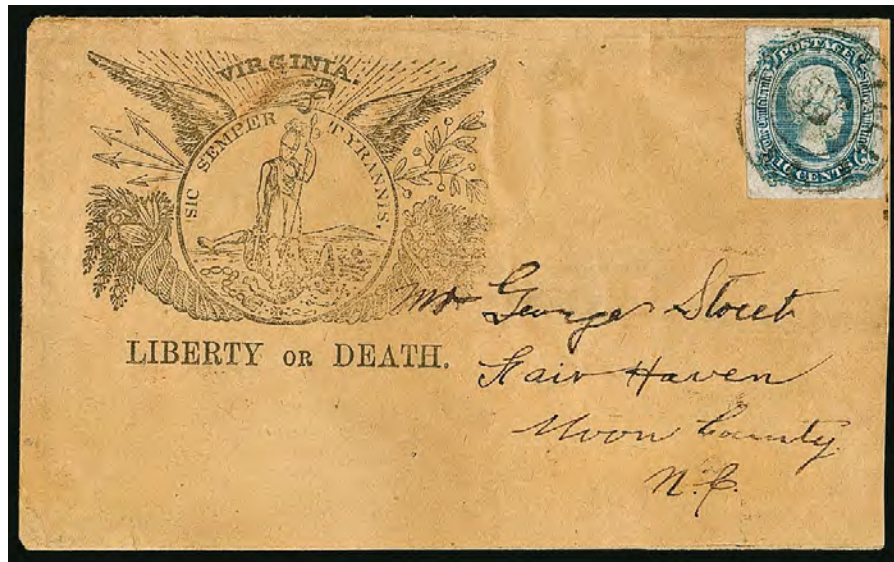 VIRGINIA.
SIC SEMPER TYRANNIS.
LIBERTY OR DEATH.
POSTAGE
10 CENTS
Mr George Street
Fair Haven
Moon County
N.C.